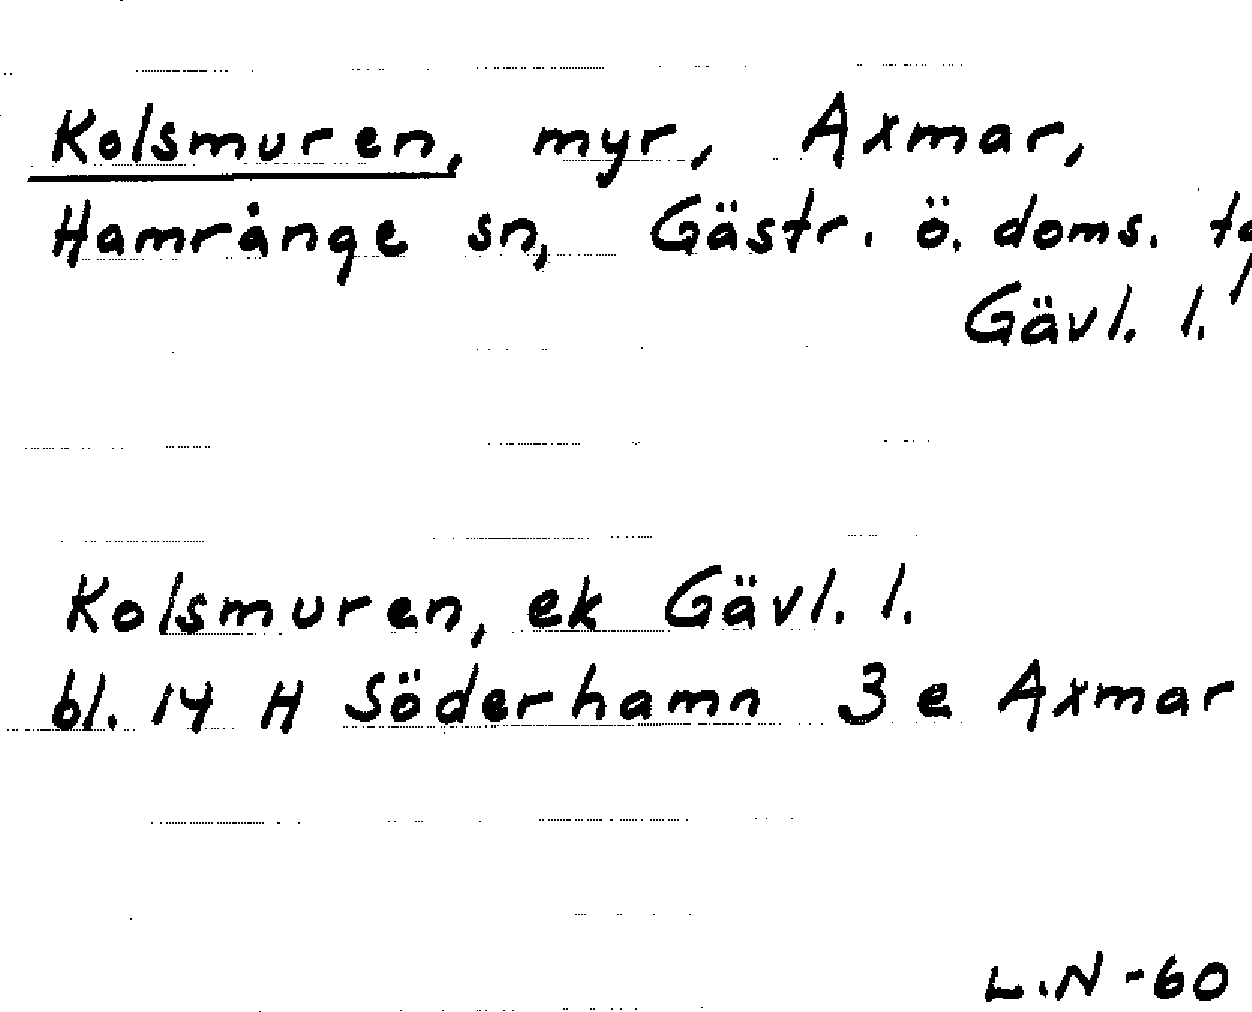 Kolsmuren, myr, Axmar,
Hamrånge sn, Gästr. ö. doms.
Gävl. l.
Kolsmuren, ek Gävl. l.
bl. 14 H Söderhamn 3 e Axmar
L.N -60